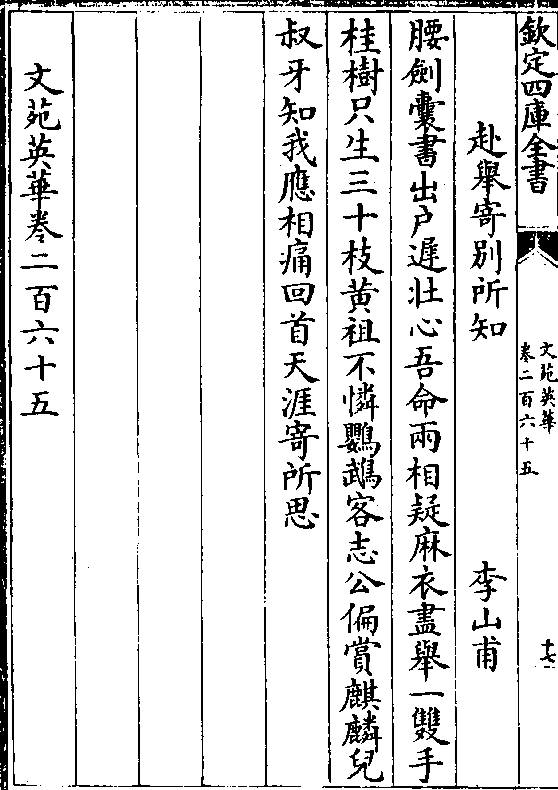 欽定四庫全書
文苑英華
卷二百六十五
十七
赴舉寄別所知 李山甫
腰劍囊書出户遲壯心吾命兩相疑麻衣盡舉一雙手
桂樹只生三十枝黄祖不憐鸚鵡客志公偏賞麒麟兒
叔牙知我應相痛回首天涯寄所思
文苑英華卷二百六十五